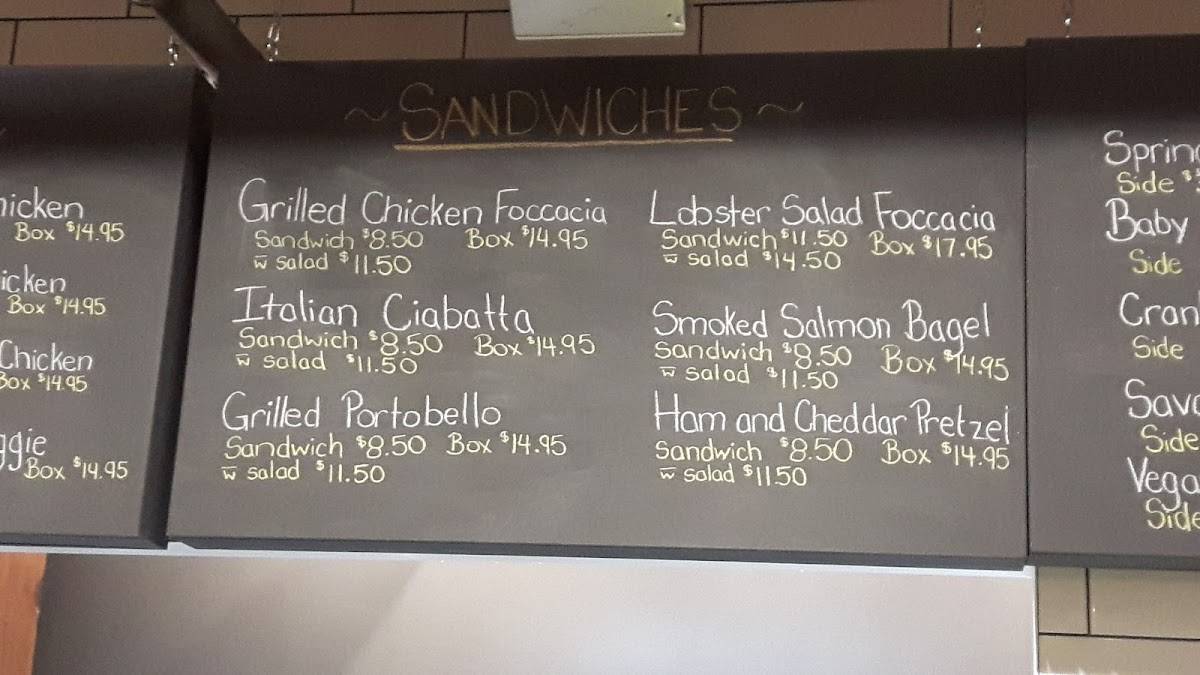 hicken
Box $14.95
icken
Box $14.95
Chicken
Box $14.95
ggie
Box $14.95
~ SANDWICHES ~
Grilled Chicken Foccacia
Sandwich $8.50 Box $14.95
w̅ salad $11.50
Italian Ciabatta
Sandwich $8.50 Box $14.95
w̅ salad $11.50
Grilled Portobello
Sandwich $8.50 Box $14.95
w̅ salad $11.50
Lobster Salad Foccacia
Sandwich $11.50 Box $17.95
w̅ salad $14.50
Smoked Salmon Bagel
Sandwich $8.50 Box $14.95
w̅ salad $11.50
Ham and Cheddar Pretzel
Sandwich $8.50 Box $14.95
w̅ salad $11.50
Spring
Side $
Baby
Side
Cran
Side
Sav
Side
Vega
Side